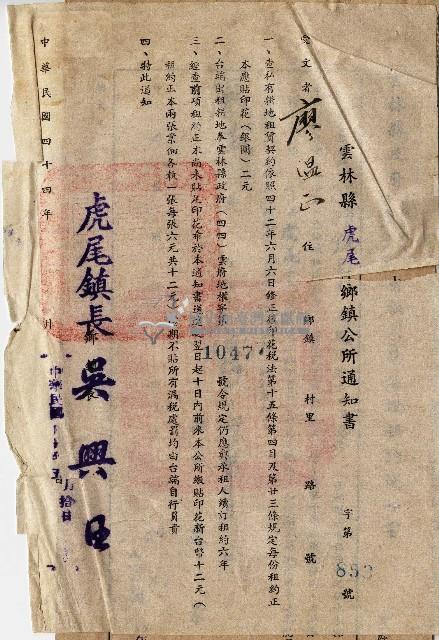 雲林縣虎尾鄉鎮公所通知書
字第853號
受文者 廖温正 住 鄉鎮 村里 路 號
一、查私有耕地租賃契約依照四十二年六月六日修正後印花稅法第十五條第四目及第廿三條規定每份租約正
本應貼印花(銀圓)二元
二、台端出租耕地奉雲林縣政府(四四)雲府地權字第10477號令規定仍應與承租人續訂租約六年
三、經查前項租約正本尚未貼足印花希於本通知書送達翌日起十日內前來本公所繳貼印花新台幣十二元(
租約正本兩張業佃各執一張每張六元共十二元)期不貼所有漏稅處罰均由台端自行負責
四、特此通知
虎尾鎮長吳興旺
鄉鎮長
中華民國四十四年 月
中華民國 月拾日